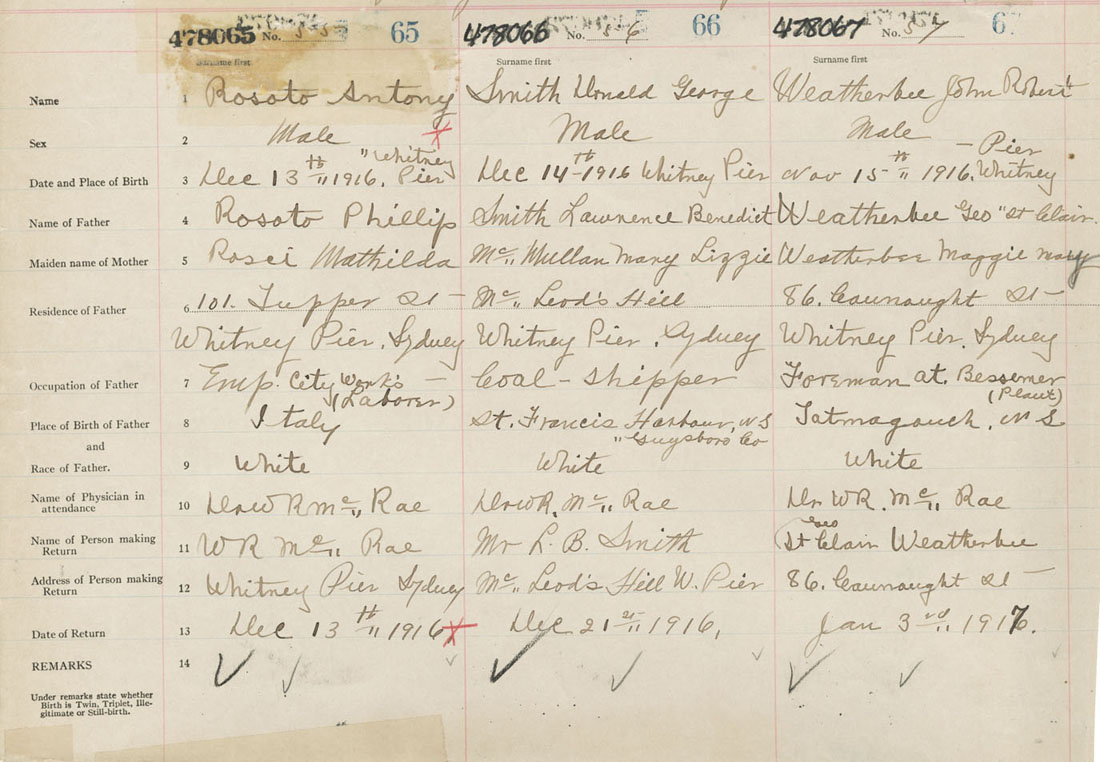 478065 No. 65 478066 No. 6 66 478067 No. 57 6
Surname first Surname first Surname first
Name 1 Rosoto Antony Smith Donald George Weatherbee John Robert
Sex 2 Male X Male Male
" Whitney - Pier
Date and Place of Birth 3 Dec 13th " 1916, Pier Dec 14th 1916 Whitney Pier Nov 15th " 1916. Whitney
Name of Father 4 Rosoto Phillip Smith Lawrence Benedict Weatherbee Geo " St Clair.
Maiden name of Mother 5 Rosci Mathilda Mc " Mullan Mary Lizzie Weatherbee Maggie Mary
Residence of Father 6 101. Tupper St - Mc " Leod's Hill 86. Caunaught St -
Whitney Pier, Sydney Whitney Pier, Sydney Whitney Pier, Sydney
Occupation of Father 7 Emp. City Works - Coal - Shipper Foreman at. Bessemer
(Laborer) (Plant)
Place of Birth of Father 8 Italy St. Francis Harbour, N S Tatmagouch, N S
and " Guysboro Co
Race of Father. 9 White White White
Name of Physician in attendance 10 Dr W R Mc " Rae Dr W R. Mc " Rae Dr W R. Mc " Rae
Geo
Name of Person making Return 11 W R Mc " Rae Mr L. B. Smith St Clair Weatherbee
Address of Person making Return 12 Whitney Pier Sydney Mc " Leod's Hill W. Pier 86. Caunaught St -
Date of Return 13 Dec 13th " 1916 X Dec 21st " 1916, Jan 3rd " 1917.
REMARKS 14
Under remarks state whether
Birth is Twin, Triplet, Ille-
gitimate or Still-birth.